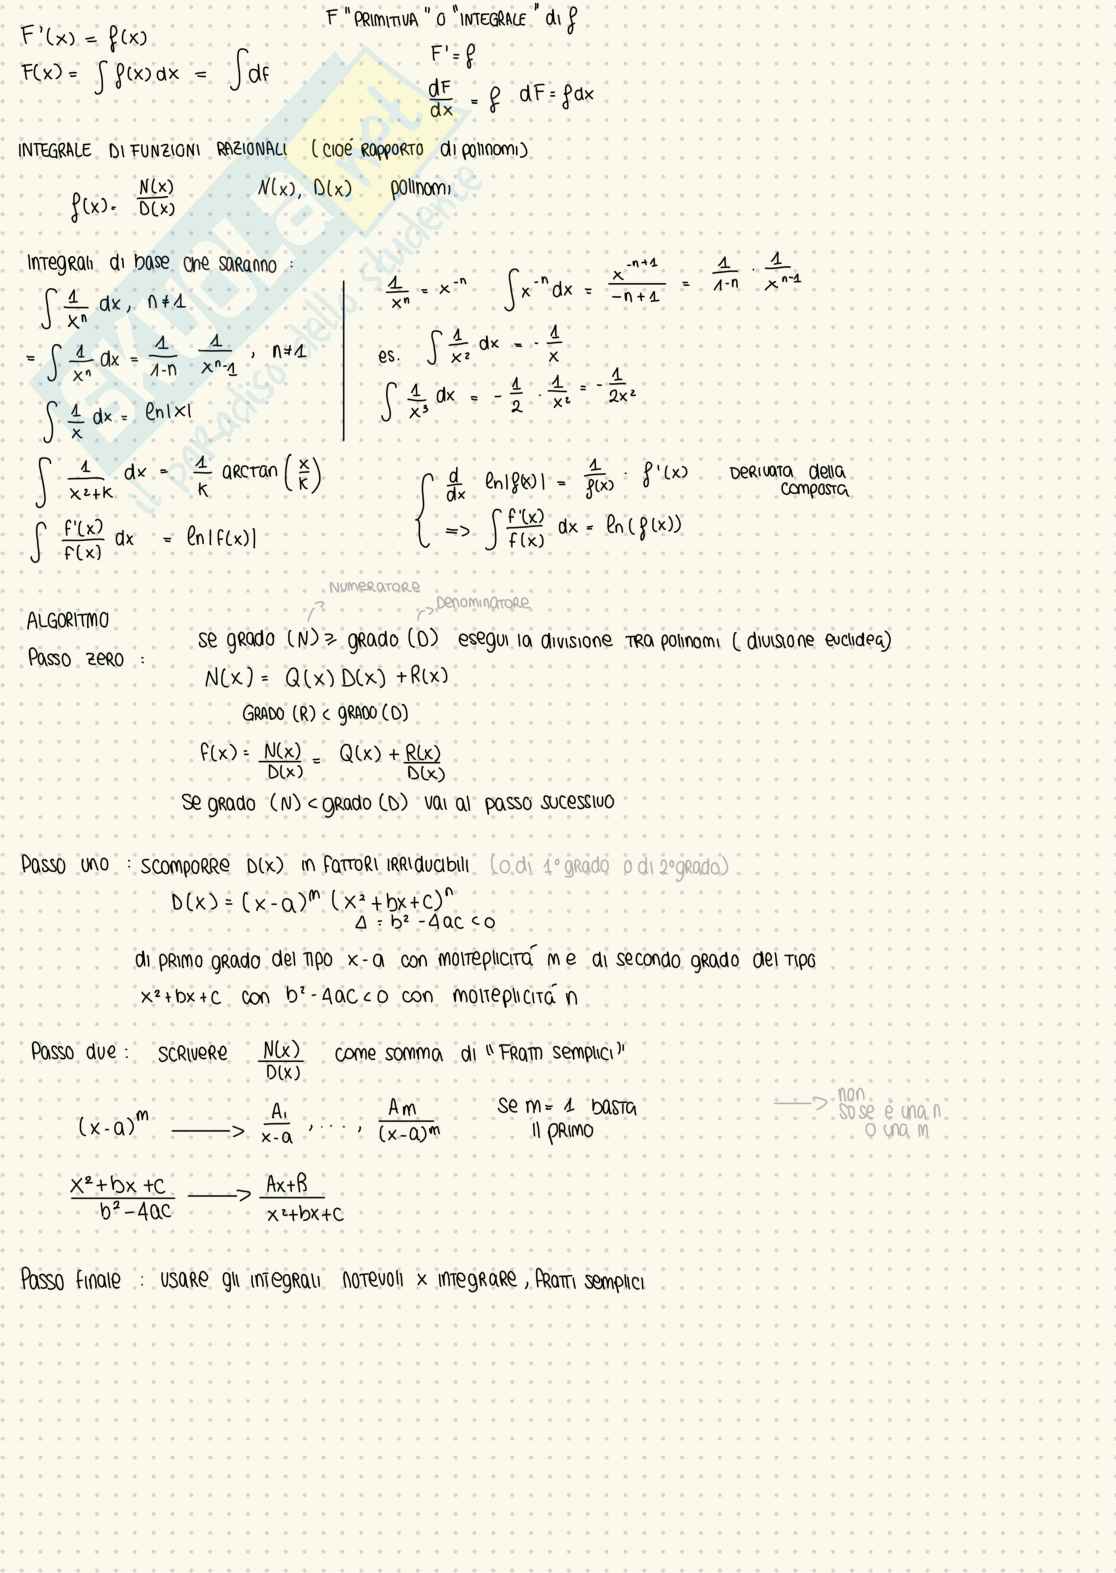 F'(x) = f(x)
F(x) = ∫ f(x) dx = ∫ df
F "PRIMITIVA" O "INTEGRALE" di f
F' = f
dF/dx = f dF = f dx
INTEGRALE DI FUNZIONI RAZIONALI (CIOÉ RAPPORTO di polinomi)
f(x) = N(x)/D(x) N(x), D(x) polinomi
Integrali di base che saranno :
∫ 1/xⁿ dx, n ≠ 1
= ∫ 1/xⁿ dx = 1/(1-n) 1/xⁿ-1 , n ≠ 1
∫ 1/x dx = ln|x|
1/xⁿ = x⁻ⁿ ∫ x⁻ⁿ dx = x⁻ⁿ⁺¹/(-n+1) = 1/(1-n) · 1/xⁿ⁻¹
es. ∫ 1/x² dx = - 1/x
∫ 1/x³ dx = - 1/2 · 1/x² = - 1/2x²
∫ 1/(x²+k) dx = 1/k arctan (x/k)
∫ f'(x)/f(x) dx = ln|f(x)|
{ d/dx ln|f(x)| = 1/f(x) · f'(x) DERIVATA della composta
=> ∫ f'(x)/f(x) dx = ln(f(x))
Numeratore
Denominatore
ALGORITMO
Passo zero : se grado (N) ≥ grado (D) esegui la divisione TRA polinomi (divisione euclidea)
N(x) = Q(x) D(x) + R(x)
GRADO (R) < grado (D)
f(x) = N(x)/D(x) = Q(x) + R(x)/D(x)
Se grado (N) < grado (D) vai al passo sucessivo
Passo uno : scomporre D(x) in fattori irriducibili (o di 1° grado o di 2° grado)
D(x) = (x-a)ᵐ (x²+bx+c)ⁿ
Δ = b² - 4ac < 0
di primo grado del tipo x-a con molteplicitá m e di secondo grado del tipo
x²+bx+c con b²-4ac < 0 con molteplicitá n
Passo due : scrivere N(x)/D(x) come somma di "Fratti semplici"
(x-a)ᵐ ⟶ A₁/(x-a) , ... , Am/(x-a)ᵐ Se m = 1 basta il primo
⟶ non so se è una n o una m
x²+bx+c/b²-4ac ⟶ Ax+B/x²+bx+c
Passo finale : usare gli integrali notevoli x integrare, fratti semplici
SKUOLA.net
il paradiso dello studente